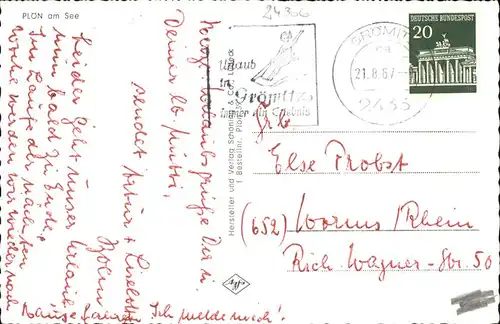 PLÖN am See
24306
Urlaub
in
Grömitz
immer ein Erlebnis
GRÖMITZ
21.8.67
2433
DEUTSCHE BUNDESPOST
20
Hersteller und Verlag Schöning & Co., Lübeck
Bestellnr. Plö
Agfa
Else Probst
(652) Worms/Rhein
Rich. Wagner-Str. 50
Urlaubsgrüße Dir u.
Deiner lb. Mutti,
sendet Artur + Liselotte
Leider geht unser Urlaub
nun bald zu Ende.
Im Laufe der nächsten
Woche werden wir wieder nach
Hause fahren. Ich melde mich!